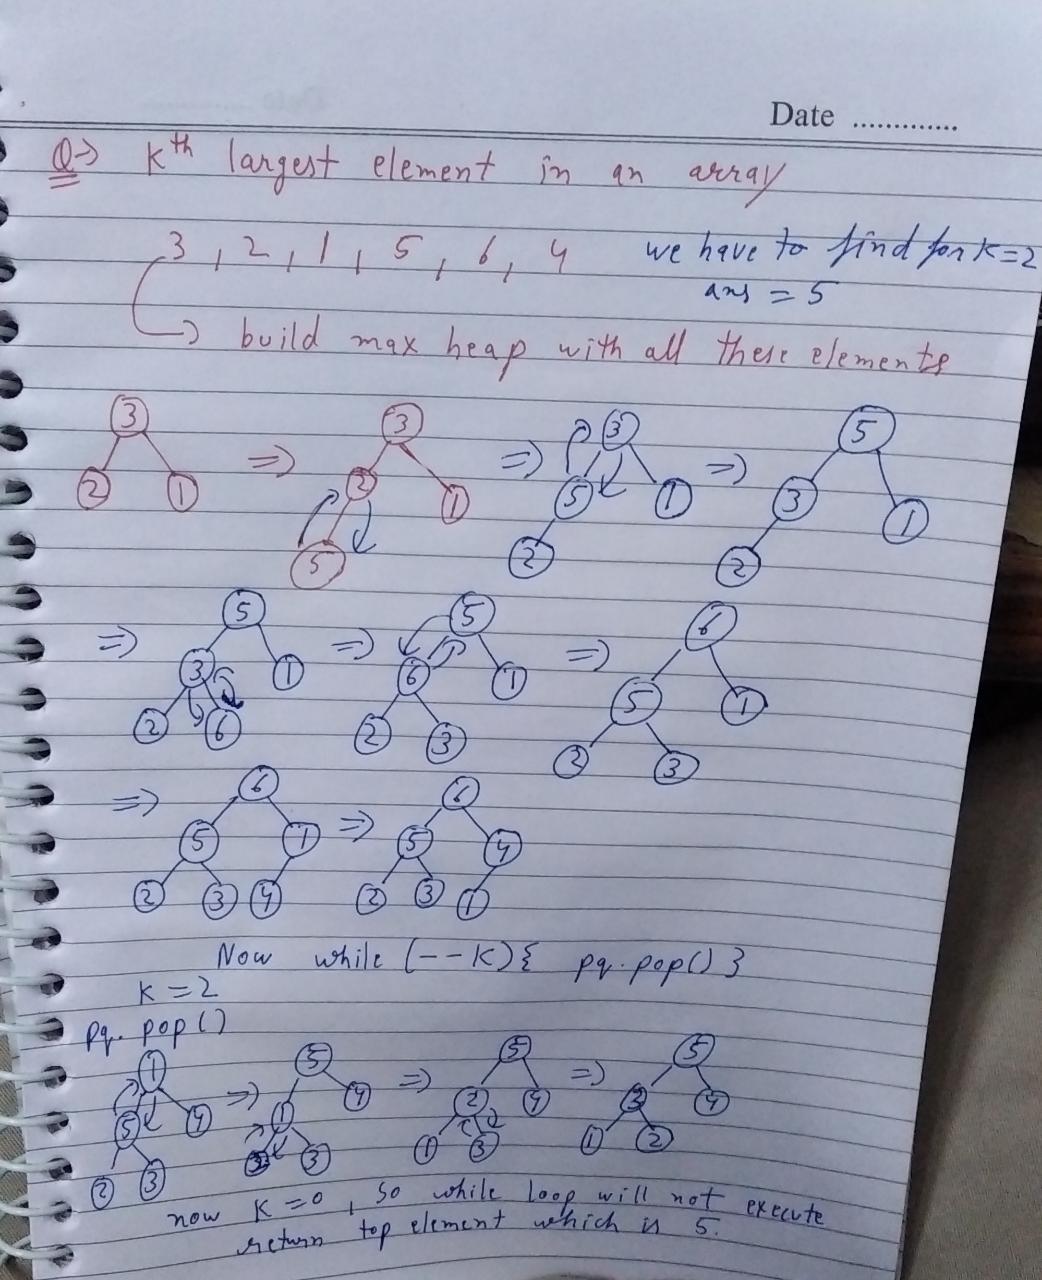 Date .............
Q→ Kth largest element in an array
3, 2, 1, 5, 6, 4 we have to find for K=2
ans = 5
build max heap with all these elements
3 3 3 5
2 1 2 1 5 1 3 1
5 2 2
⇒ 5 ⇒ 5 ⇒ 6
3 1 6 1 5 1
2 6 2 3 2 3
⇒ 6 ⇒ 6
5 1 5 4
2 3 4 2 3 1
Now while (--K){ pq.pop() }
K = 2
pq. pop()
1 ⇒ 5 ⇒ 5 ⇒ 5
5 4 1 4 2 4 3 4
2 3 3 1 3 1 2
now K=0, so while loop will not execute
return top element which is 5.